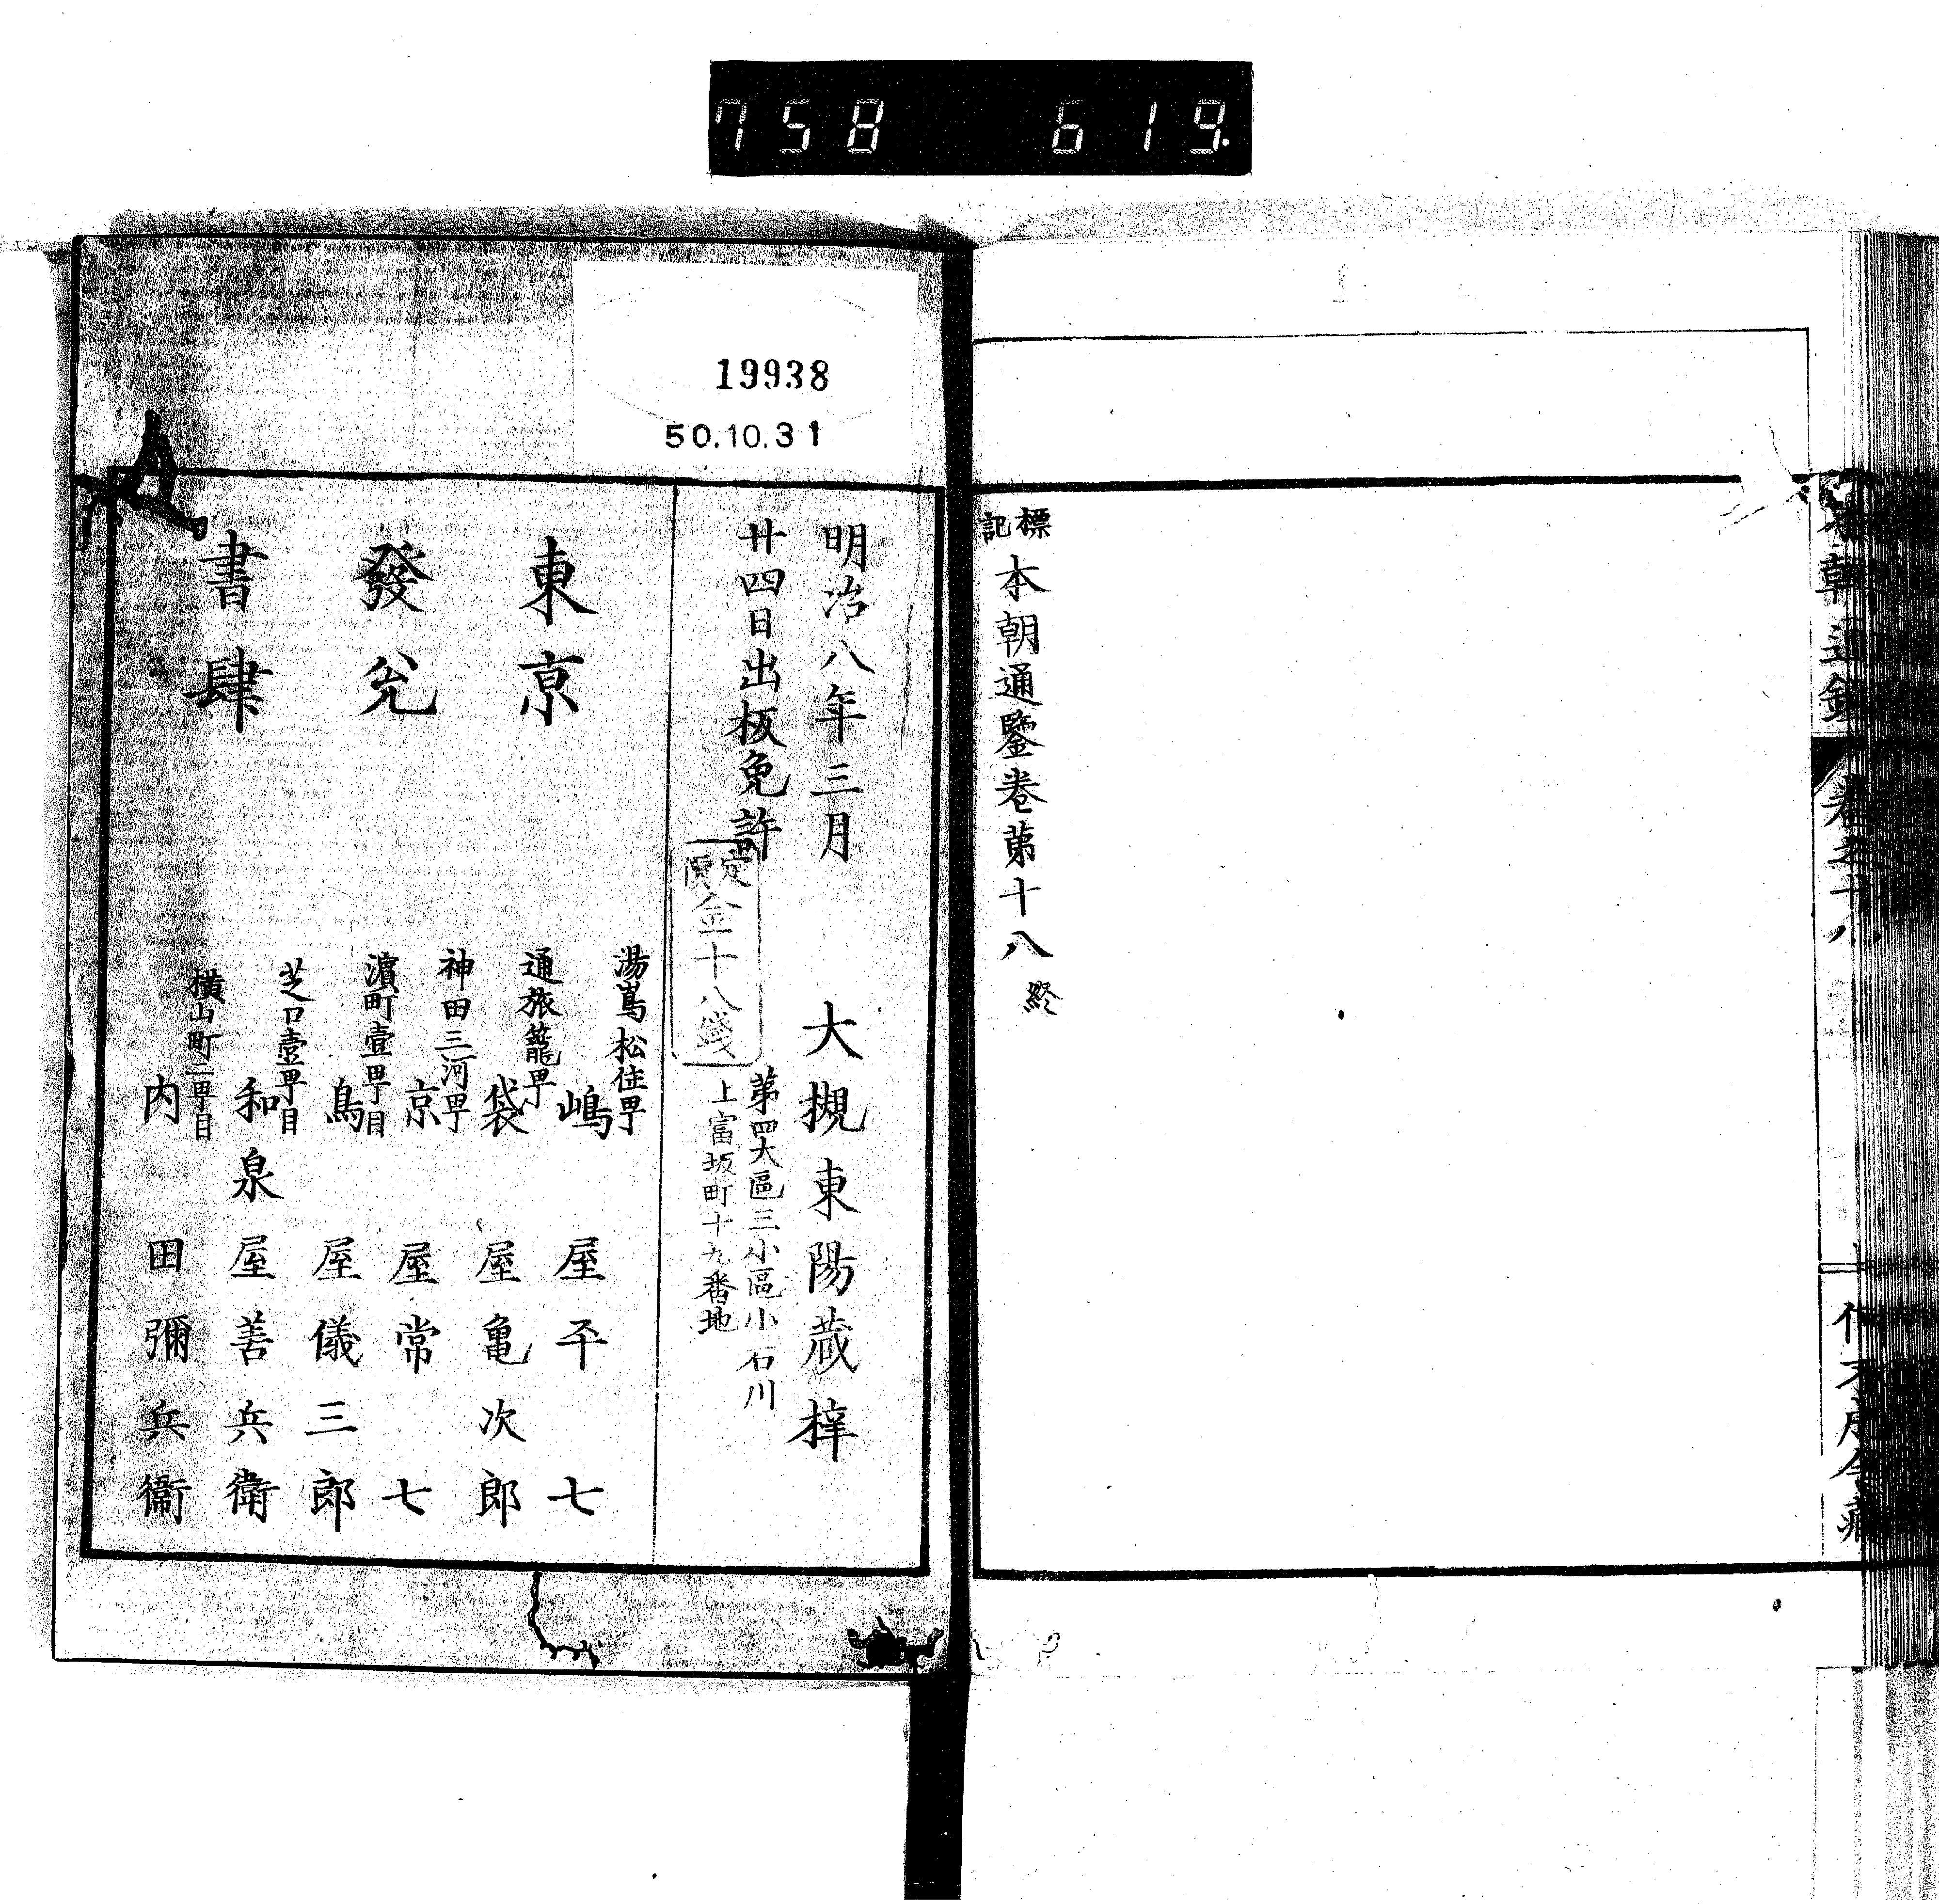 758 619
19938
50.10.31
本朝通鑑
標記 本朝通鑒卷第十八 終
明治八年三月
廿四日出板免許
定價金十八錢
大槻東陽蔵梓
第四大區三小區小石川
上富坂町十九番地
東京
發兌
書肆
湯嶌松住町
嶋屋平七
通旅籠町
袋屋亀次郎
神田三河町
京屋常七
濵町壹町目
鳥屋儀三郎
芝口壹町目
和泉屋善兵衛
横山町二町目
内田彌兵衞